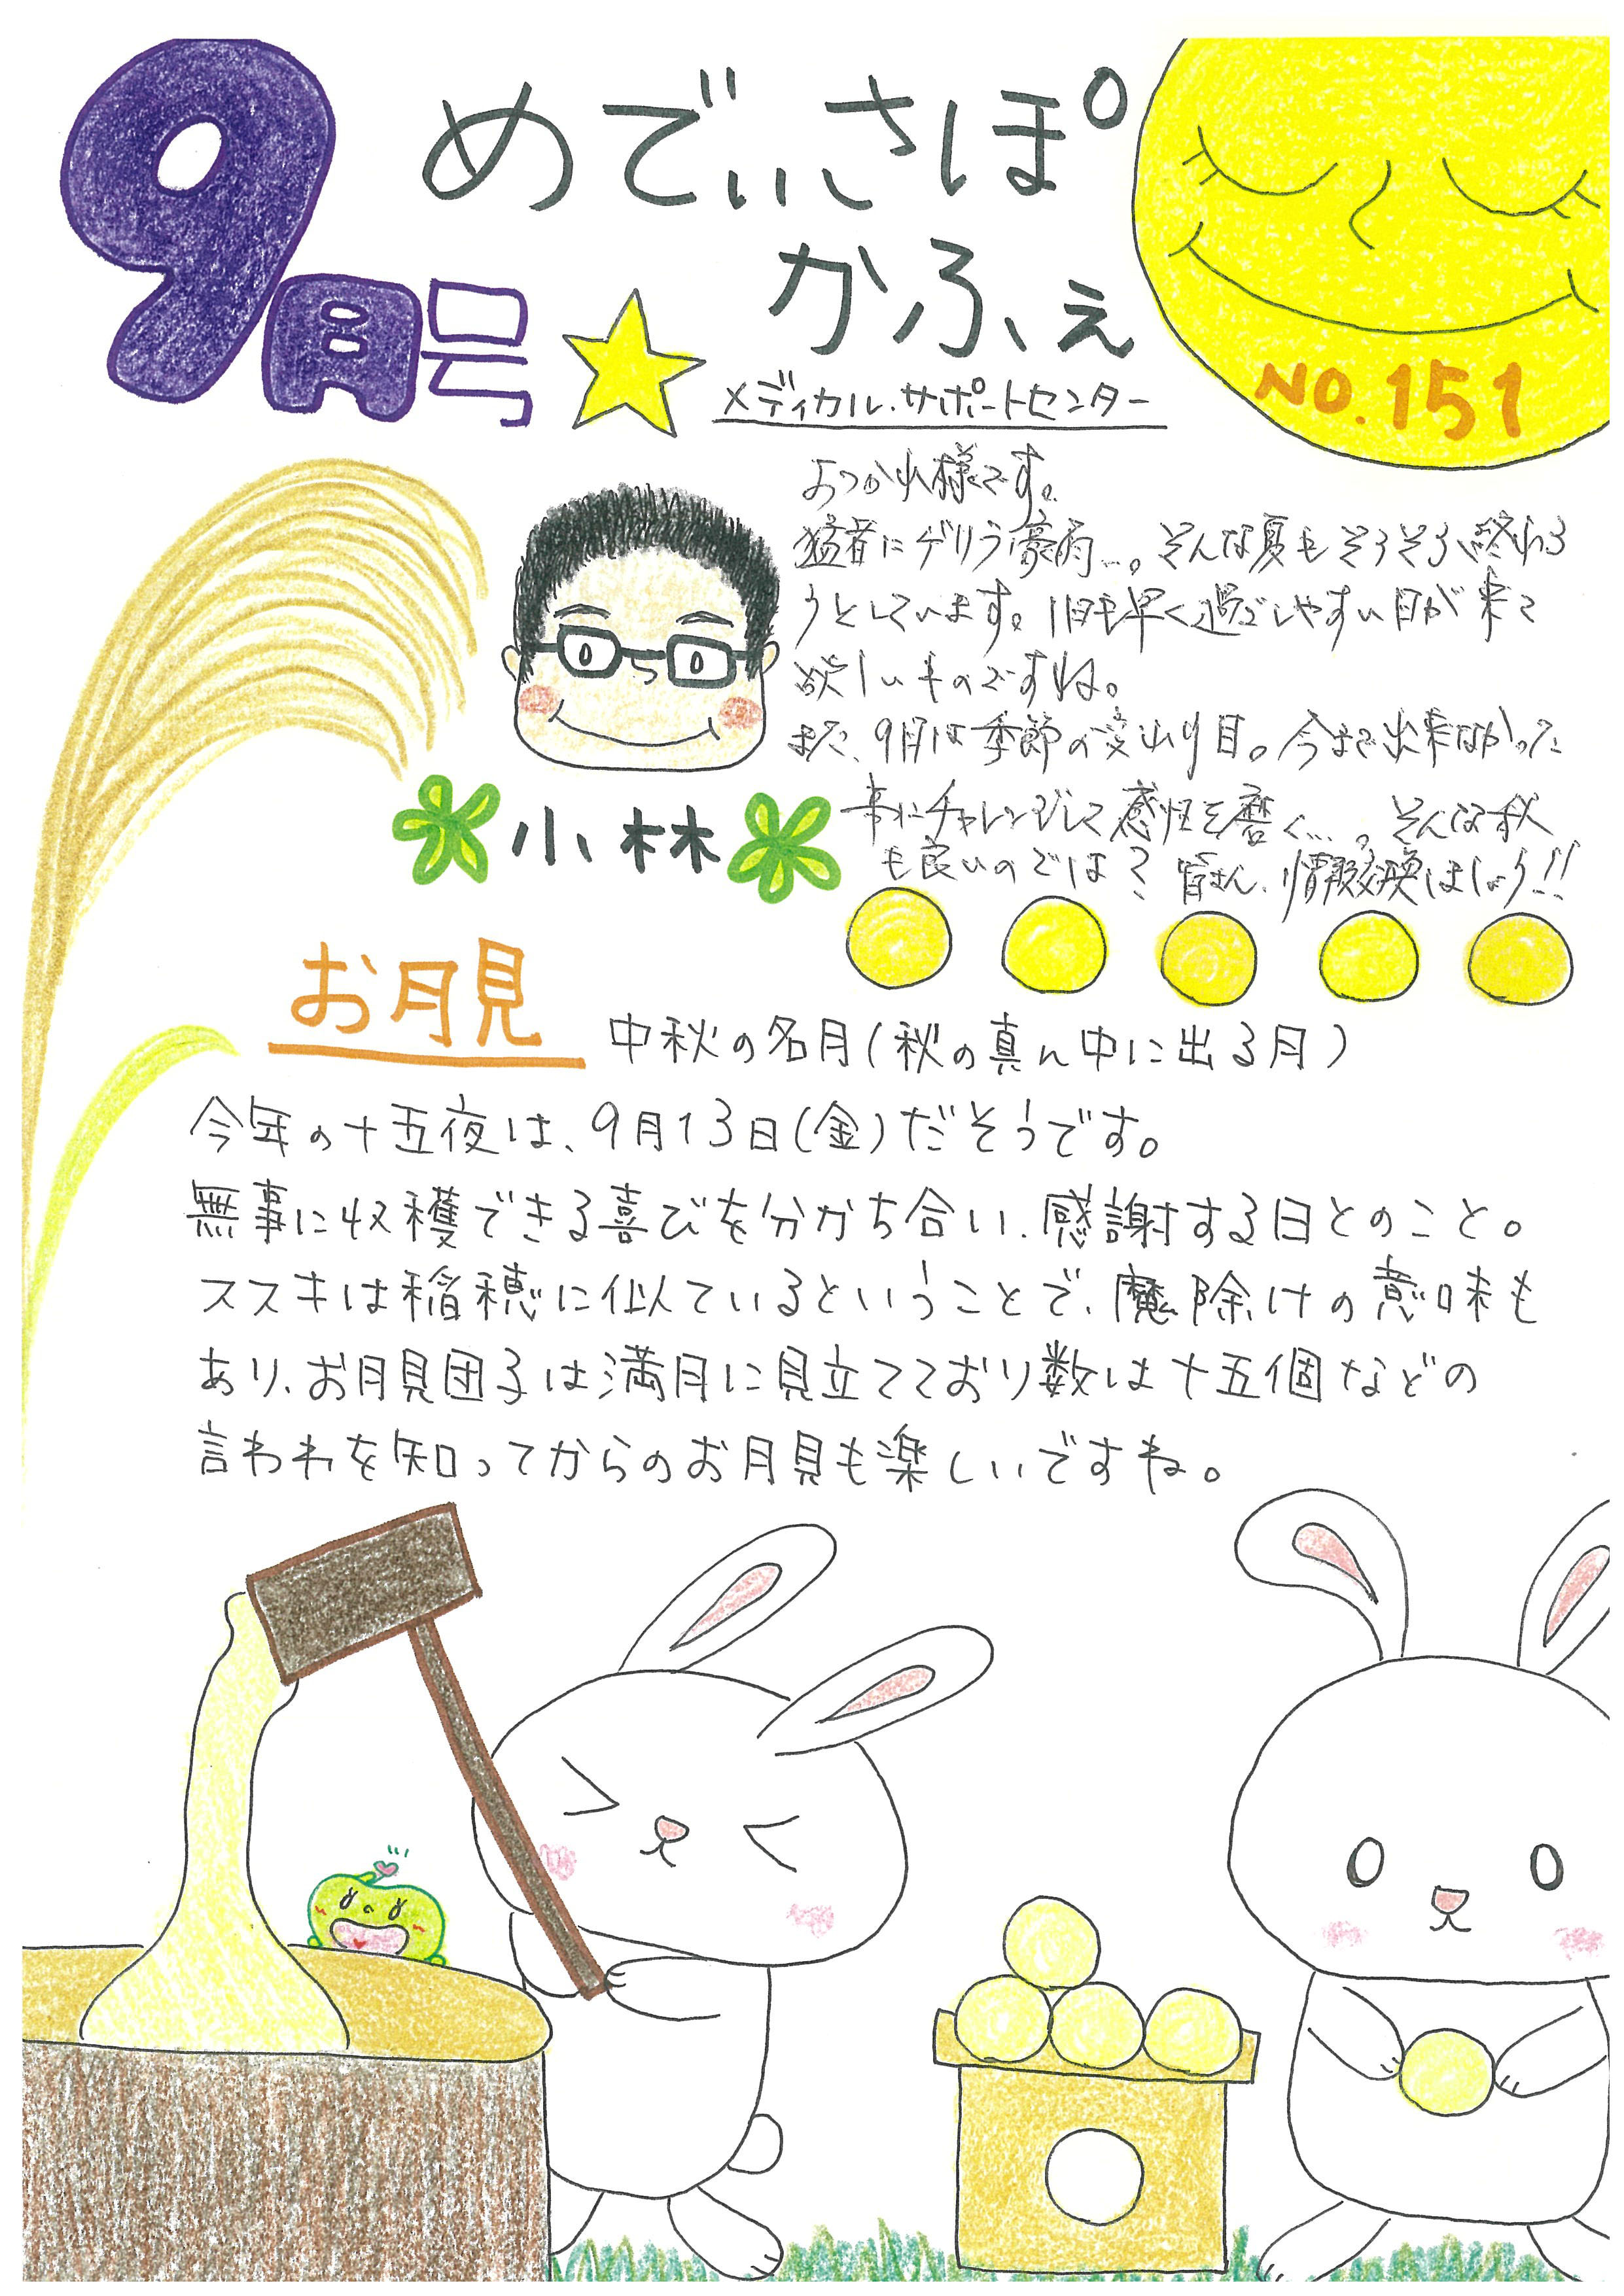 9月号
めでぃさぽ
かふぇ
メディカル.サポートセンター
NO.151
おつかれ様です。
猛暑にゲリラ豪雨…。そんな夏もそろそろ終わろ
うとしています。1日も早く過ごしやすい日が来て
欲しいものですね。
また、9月は季節の変わり目。今まで出来なかった
事にチャレンジして感性を磨く…。そんな秋
も良いのでは？皆さん、情報交換しましょう!!
小林
お月見
中秋の名月(秋の真ん中に出る月)
今年の十五夜は、9月13日(金)だそうです。
無事に収穫できる喜びを分かち合い、感謝する日とのこと。
ススキは稲穂に似ているということで、魔除けの意味も
あり、お月見団子は満月に見立てており数は十五個などの
言われを知ってからのお月見も楽しいですね。